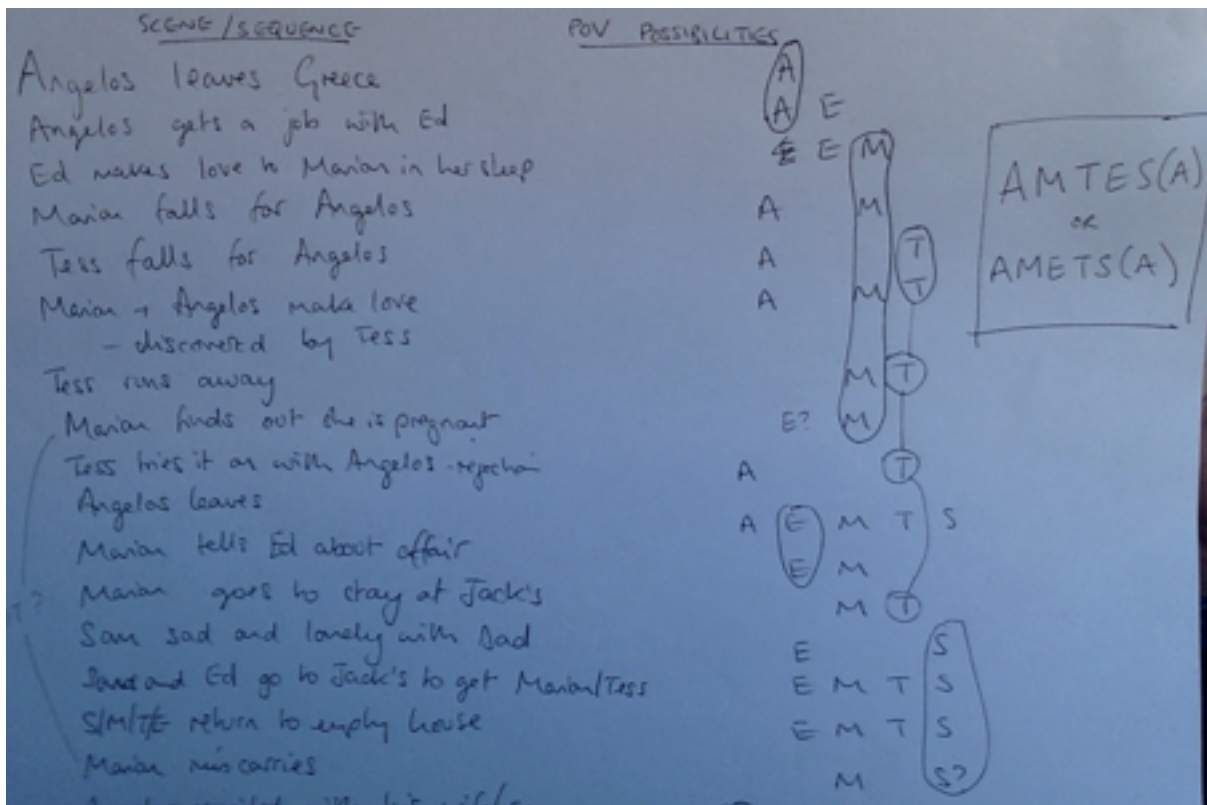 SCENE/SEQUENCE POV POSSIBILITIES
Angelos leaves Greece A
Angelos gets a job with Ed A E
Ed makes love to Marian in her sleep E M
Marian falls for Angelos A M
Tess falls for Angelos A T
Marian + Angelos make love A M T
- discovered by Tess
Tess runs away M T
Marian finds out she is pregnant E? M
Tess tries it on with Angelos - rejection A T
Angelos leaves A E M T S
Marian tells Ed about affair E M
Marian goes to stay at Jack's M T
Sam sad and lonely with Dad E S
and Ed go to Jack's to get Marian/Tess E M T S
S/M/T/E return to empty house E M T S
Marian miscarries M S?
T?
AMTES(A)
OR
AMETS(A)